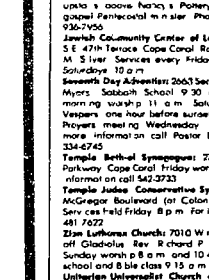 upsta s above Nancy s Pottery
gospel Pentecostal m n ster Pho
936-7956
Jewish Community Center of L
S E 47th Terrace Cape Coral Ra
M S lver Services every Friday
Saturdays 10 a m
Seventh Day Adventist: 2663 Sec
Myers Sabbath School 9 30
morn ng worsh p 11 a m Satu
Vespers one hour before sunse
Prayers meet ng Wednesday
more informat on call Pastor
334-6745
Temple Beth-el Synagogue: 2
Parkway Cape Coral Friday wor
nformat on call 542-3733
Temple Judea Conservative Sy
McGregor Boulevard (at Colon
Serv ces held Friday 8 p m For i
481 7622
Zion Lutheran Church: 7010 W
off Gladiolus Rev R chard P
Sunday worsh p 8 a m and 10 4
school and B ble class 9 15 a m
Unitarian Universalist Church